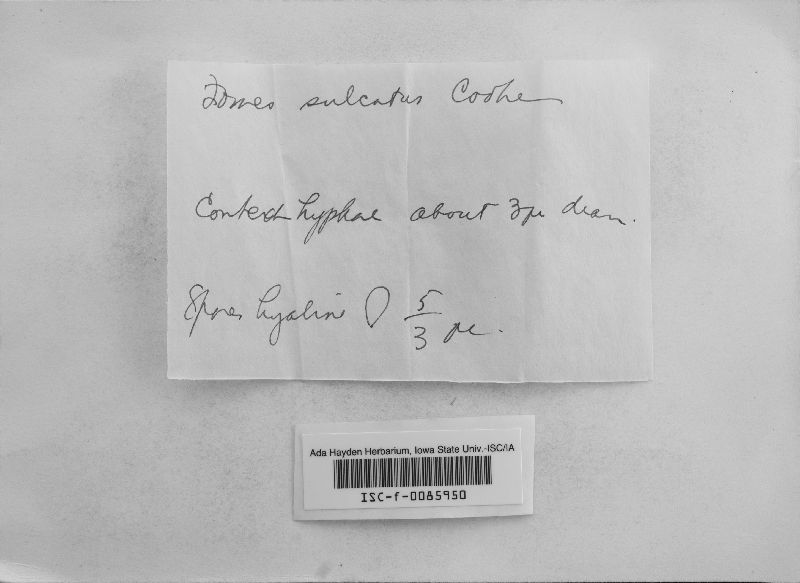 Fomes sulcatus Cooke
Context hyphae about 3μ diam.
Spores hyaline 5/3 μ.
Ada Hayden Herbarium, Iowa State Univ.-ISC/IA
ISC-f-0085950